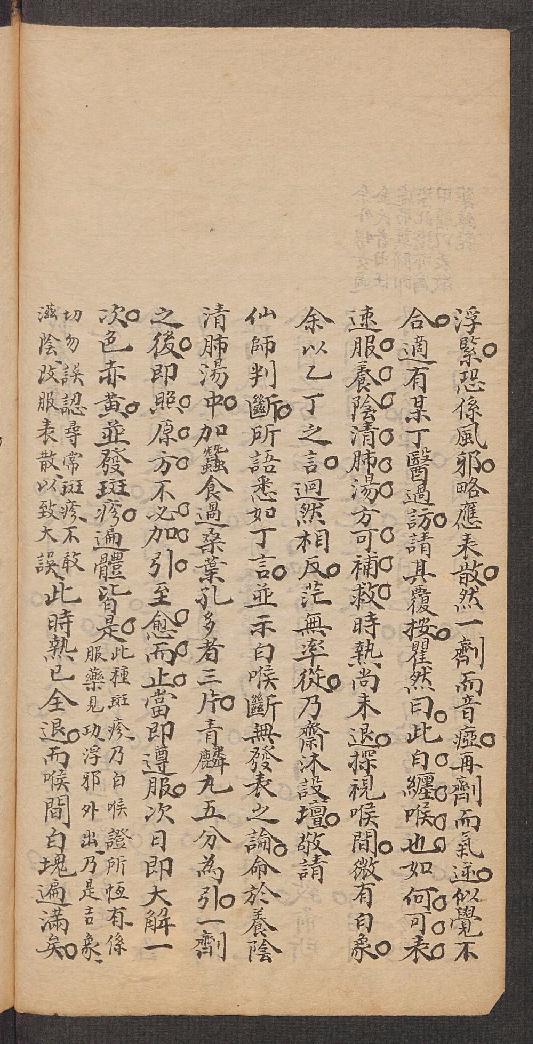 浮緊恐係風邪略應表散然一劑而音瘂再劑而氣逆似覺不
合適有某丁醫過訪請其覆按瞿然曰此白纏喉也如何可表
速服養陰清肺湯方可補救時熱尚未退探視喉間微有白象
余以乙丁之言迥然相反茫無率從乃齋沐設壇敬請
仙師判斷所語悉如丁言並示白喉斷無發表之論命於養陰
清肺湯中加蠶食過桑葉孔多者三片青麟丸五分為引一劑
之後即照原方不必加引至愈而止當即遵服次日即大解一
次色赤黃並發斑疹遍體皆是此種斑疹乃白喉證所恆有係
服藥見功浮邪外出乃是吉象
切勿誤認尋常斑疹不敢
滋陰改服表散以致大誤此時熱已全退而喉間白塊遍滿矣